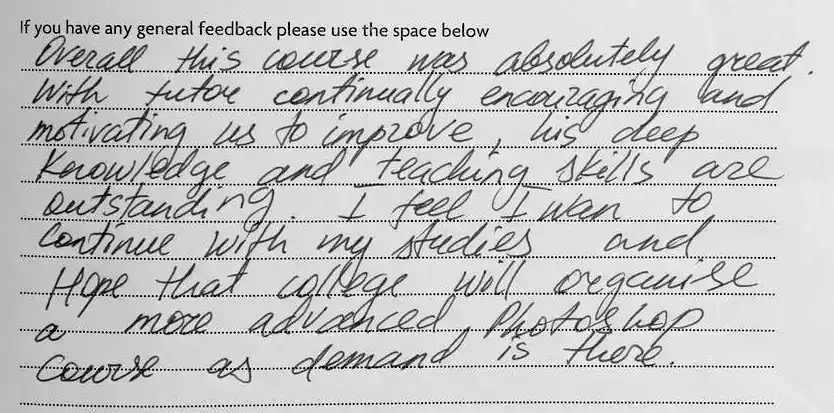 If you have any general feedback please use the space below
Overall this course was absolutely great.
With tutor continually encouraging and
motivating us to improve, his deep
Knowledge and teaching skills are
outstanding. I feel I wan to
Continue with my studies and
Hope that college will organise
a more advanced Photoshop
Course as demand is there.